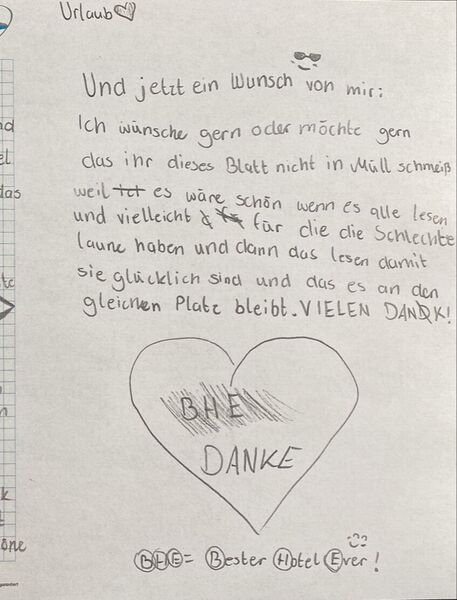 Urlaub
Und jetzt ein Wunsch von mir:
Ich wünsche gern oder möchte gern
das ihr dieses Blatt nicht in Müll schmeiß
weil es wäre schön wenn es alle lesen
und vielleicht für die die Schlechte
laune haben und dann das lesen damit
sie glücklich sind und das es an den
gleichen Platz bleibt. VIELEN DANK!
BHE
DANKE
BHE = Bester Hotel Ever!
das
öne